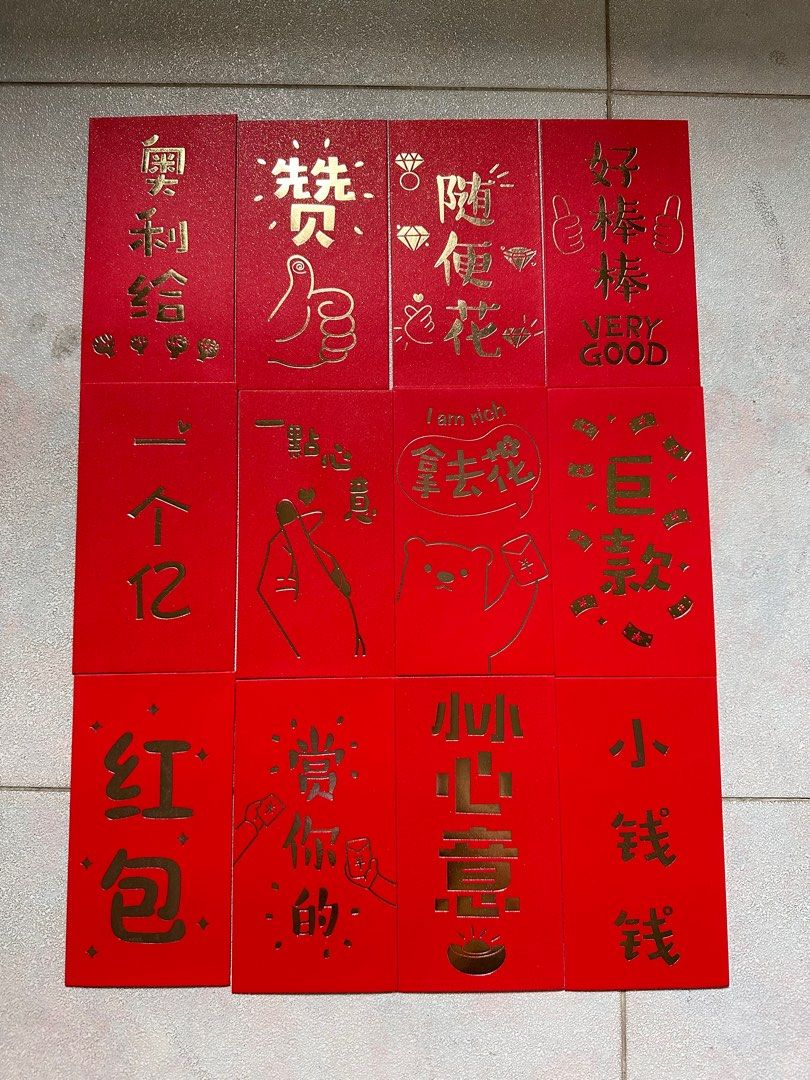 奥利给
赞
随便花
好棒棒
VERY
GOOD
一个亿
一點心意
I am rich
拿去花
巨款
红包
赏你的
小小心意
小钱钱